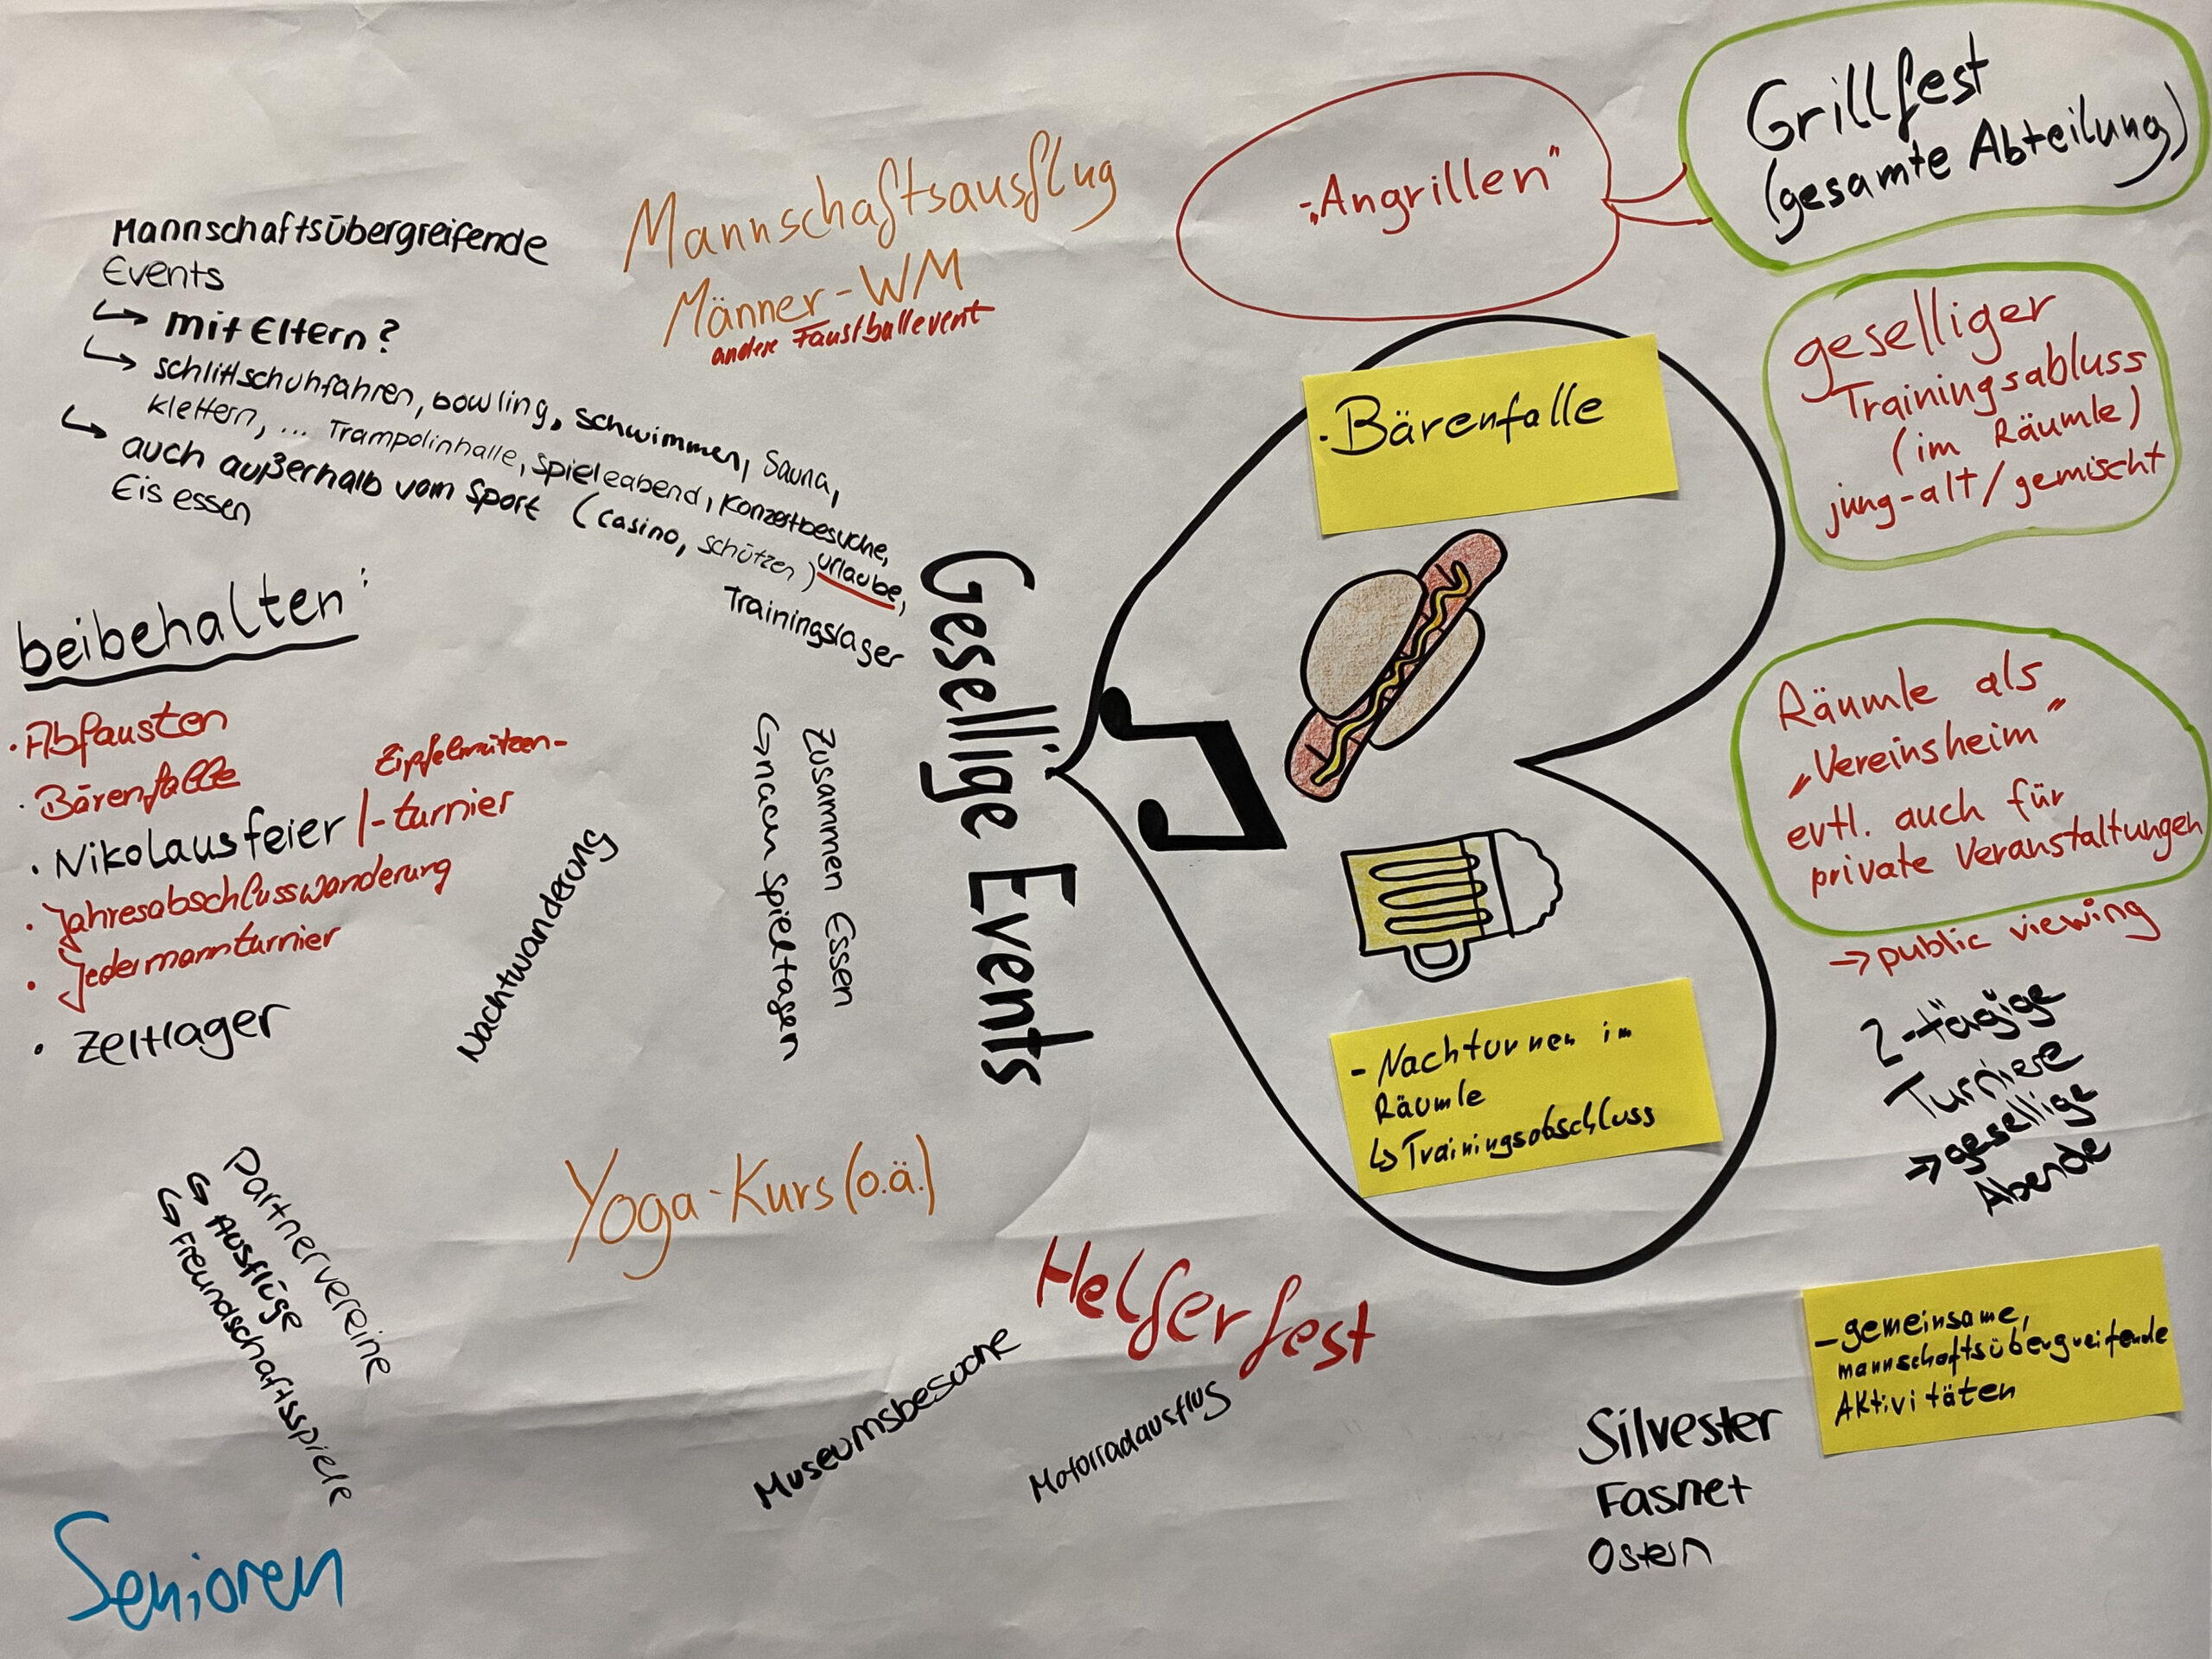 Gesellige Events
Mannschaftsübergreifende
Events
↳ mit Eltern?
↳ schlittschuhfahren, bowling, schwimmen, Sauna,
klettern, ... Trampolinhalle, Spieleabend, Konzertbesuche,
↳ auch außerhalb vom Sport (Casino, schützen) urlaube,
Eis essen
Trainingslager
Mannschaftsausflug
Männer-WM
andere Faustballevent
-„Angrillen"
Grillfest
(gesamte Abteilung)
geselliger
Trainingsabluss
(im Räumle)
jung-alt/gemischt
·Bärenfalle
beibehalten:
·Abfausten
·Bärenfalle
Zipfelmützen-
·Nikolausfeier/-turnier
·Jahresabschlusswanderung
·Jedermannturnier
·Zeltlager
Nachtwanderung
Zusammen Essen
↳nach Spieltagen
Räumle als
„Vereinsheim"
evtl. auch für
private Veranstaltungen
→ public viewing
2-tägige
Turniere
→ gesellige
Abende
- Nachturnen im
Räumle
↳ Trainingsabschluss
Partnervereine
↳ Ausflüge
↳ Freundschaftsspiele
Yoga-Kurs (o.ä.)
Helferfest
Museumsbesuche
Motorradausflug
- gemeinsame,
mannschaftsübergreifende
Aktivitäten
Silvester
Fasnet
Ostern
Senioren